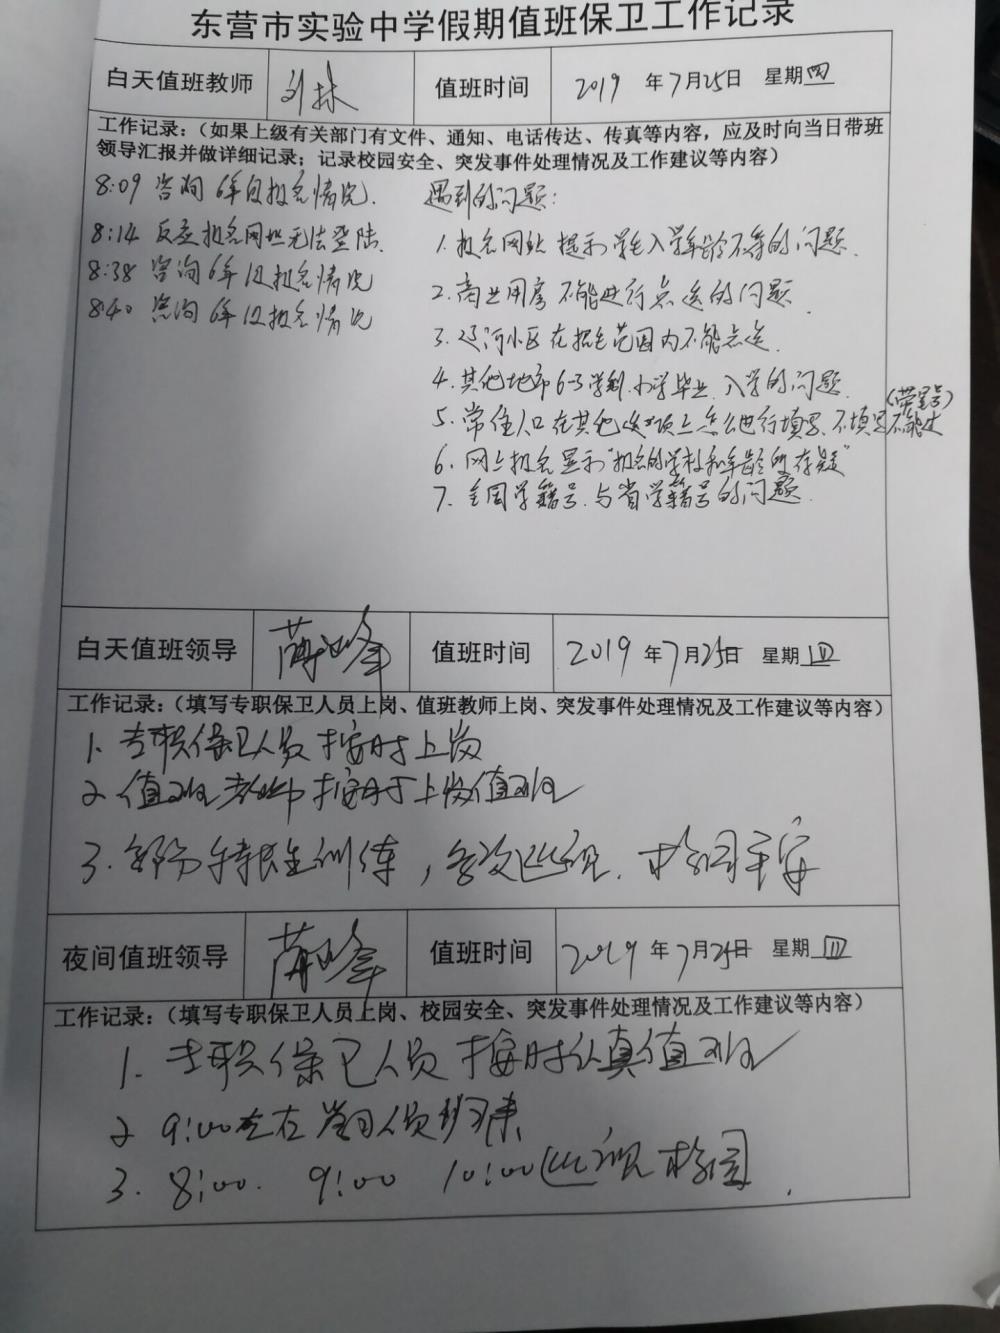 东营市实验中学假期值班保卫工作记录
白天值班教师 刘林 值班时间 2019 年7月25日 星期四
工作记录：（如果上级有关部门有文件、通知、电话传达、传真等内容，应及时向当日带班
领导汇报并做详细记录；记录校园安全、突发事件处理情况及工作建议等内容）
8:09 咨询 6年级报名情况.
8:14 反应报名网址无法登陆.
8:38 咨询6年级报名情况
8:40 咨询6年级报名情况
遇到的问题：
1. 报名网站提示学生入学年龄不符的问题.
2. 商业用房不能进行点选的问题
3. 辽河小区在招生范围内不能点选.
4. 其他地市6-3学制.小学毕业.入学的问题.
(带星号)
5. 常住人口在其他选项上怎么进行填写.不填写不能过
6. 网上报名显示"报名的学校和年龄所存疑"
7. 全国学籍号.与省学籍号的问题.
白天值班领导 薄峰 值班时间 2019 年7月25日 星期四
工作记录：（填写专职保卫人员上岗、值班教师上岗、突发事件处理情况及工作建议等内容）
1. 专职保卫人员按时上岗
2 值班老师按时上岗值班
3. 部分特长生训练，多次巡视. 校园平安
夜间值班领导 薄峰 值班时间 2019 年7月25日 星期四
工作记录：（填写专职保卫人员上岗、校园安全、突发事件处理情况及工作建议等内容）
1. 专职保卫人员按时认真值班
2 9:00左右 人员
3. 8:00. 9:00 10:00巡视校园.